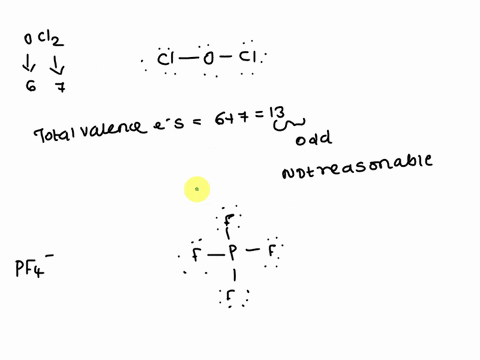 OCl2
6 7
Cl—O—Cl
Total valence e⁻s = 6+7=13
odd
Not reasonable
PF4⁻
F
F—P—F
F